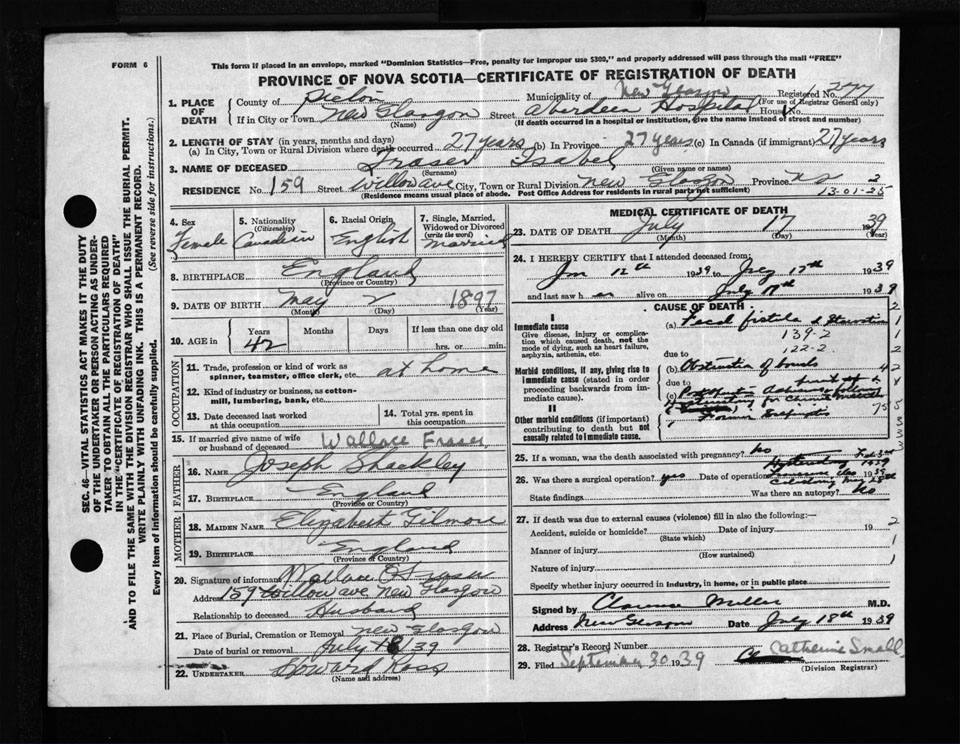 FORM 6
This form if placed in an envelope, marked "Dominion Statistics—Free, penalty for improper use $300," and properly addressed will pass through the mail "FREE"
PROVINCE OF NOVA SCOTIA—CERTIFICATE OF REGISTRATION OF DEATH
1. PLACE OF DEATH
County of Pictou Municipality of New Glasgow Registered No.
(For use of Registrar General only)
If in City or Town New Glasgow Street Aberdeen Hospital House
(Name) (If death occurred in a hospital or institution, give the name instead of street and number)
2. LENGTH OF STAY (in years, months and days)
(a) In City, Town or Rural Division where death occurred 27 years (b) In Province 27 years (c) In Canada (if immigrant) 27 years
3. NAME OF DECEASED Fraser Isabel
(Surname) (Given name or names)
RESIDENCE No. 159 Street Willow ave City, Town or Rural Division New Glasgow Province NS 2
(Residence means usual place of abode. Post Office Address for residents in rural parts not sufficient) 13-01-25
4. Sex
Female
5. Nationality
(Citizenship)
Canadian
6. Racial Origin
English
7. Single, Married, Widowed or Divorced
(write the word)
married
8. BIRTHPLACE England
(Province or Country)
9. DATE OF BIRTH May 2 1897
(Month) (Day) (Year)
10. AGE in
Years Months Days If less than one day old
42 hrs. or min.
OCCUPATION
11. Trade, profession or kind of work as spinner, teamster, office clerk, etc. at home
12. Kind of industry or business, as cotton-mill, lumbering, bank, etc.
13. Date deceased last worked at this occupation
14. Total yrs. spent in this occupation
15. If married give name of wife or husband of deceased Wallace Fraser
FATHER
16. NAME Joseph Shackley
17. BIRTHPLACE England
(Province or Country)
MOTHER
18. MAIDEN NAME Elizabeth Gilmore
19. BIRTHPLACE England
(Province or Country)
20. Signature of informant Wallace
Address 159 Willow ave New Glasgow
Relationship to deceased Husband
21. Place of Burial, Cremation or Removal New Glasgow
Date of burial or removal July 18/39
22. UNDERTAKER Howard Ross
(Name and address)
MEDICAL CERTIFICATE OF DEATH
23. DATE OF DEATH July 17 1939
(Month) (Day) (Year)
24. I HEREBY CERTIFY that I attended deceased from:
Jan 12th 1939 to July 17th 1939
and last saw h er alive on July 17th 1939
CAUSE OF DEATH
I
Immediate cause
Give disease, injury or complication which caused death, not the mode of dying, such as heart failure, asphyxia, asthenia, etc.
(a) Fecal fistula & Starvation
139-2
122-2
due to
Morbid conditions, if any, giving rise to immediate cause (stated in order proceeding backwards from immediate cause).
(b) Obstruction of bowels
due to
(c)
II
Other morbid conditions (if important) contributing to death but not causally related to immediate cause.
25. If a woman, was the death associated with pregnancy? no
26. Was there a surgical operation? yes Date of operation
State findings Was there an autopsy? No
27. If death was due to external causes (violence) fill in also the following:—
Accident, suicide or homicide? Date of injury 19
(State which)
Manner of injury
(How sustained)
Nature of injury
Specify whether injury occurred in industry, in home, or in public place
Signed by Clarence Miller M.D.
Address New Glasgow Date July 18th 1939
28. Registrar's Record Number
29. Filed September 30 1939 Catherine Small
(Division Registrar)
SEC. 46—VITAL STATISTICS ACT MAKES IT THE DUTY
OF THE UNDERTAKER OR PERSON ACTING AS UNDER-
TAKER TO OBTAIN ALL THE PARTICULARS REQUIRED
IN THE "CERTIFICATE OF REGISTRATION OF DEATH"
AND TO FILE THE SAME WITH THE DIVISION REGISTRAR WHO SHALL ISSUE THE BURIAL PERMIT.
WRITE PLAINLY WITH UNFADING INK. THIS IS A PERMANENT RECORD.
Every item of information should be carefully supplied. (See reverse side for instructions.)